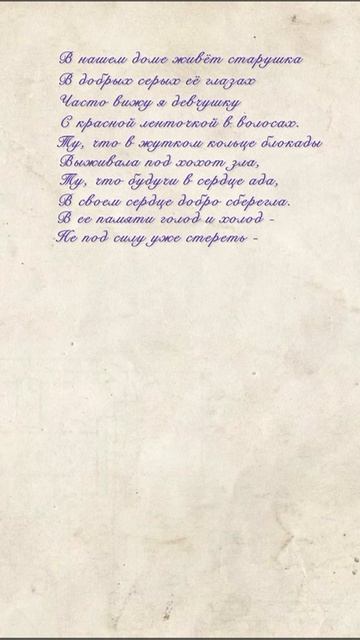 В нашем доме живёт старушка
В добрых серых её глазах
Часто вижу я девчушку
С красной ленточкой в волосах.
Ту, что в жутком кольце блокады
Выживала под хохот зла,
Ту, что будучи в сердце ада,
В своем сердце добро сберегла.
В ее памяти голод и холод -
Не под силу уже стереть -